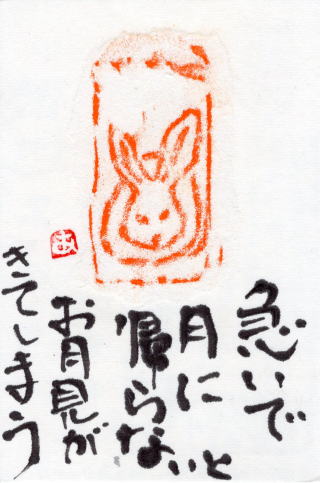 急いで
月に
帰らないと
お月見が
きてしまう
あ